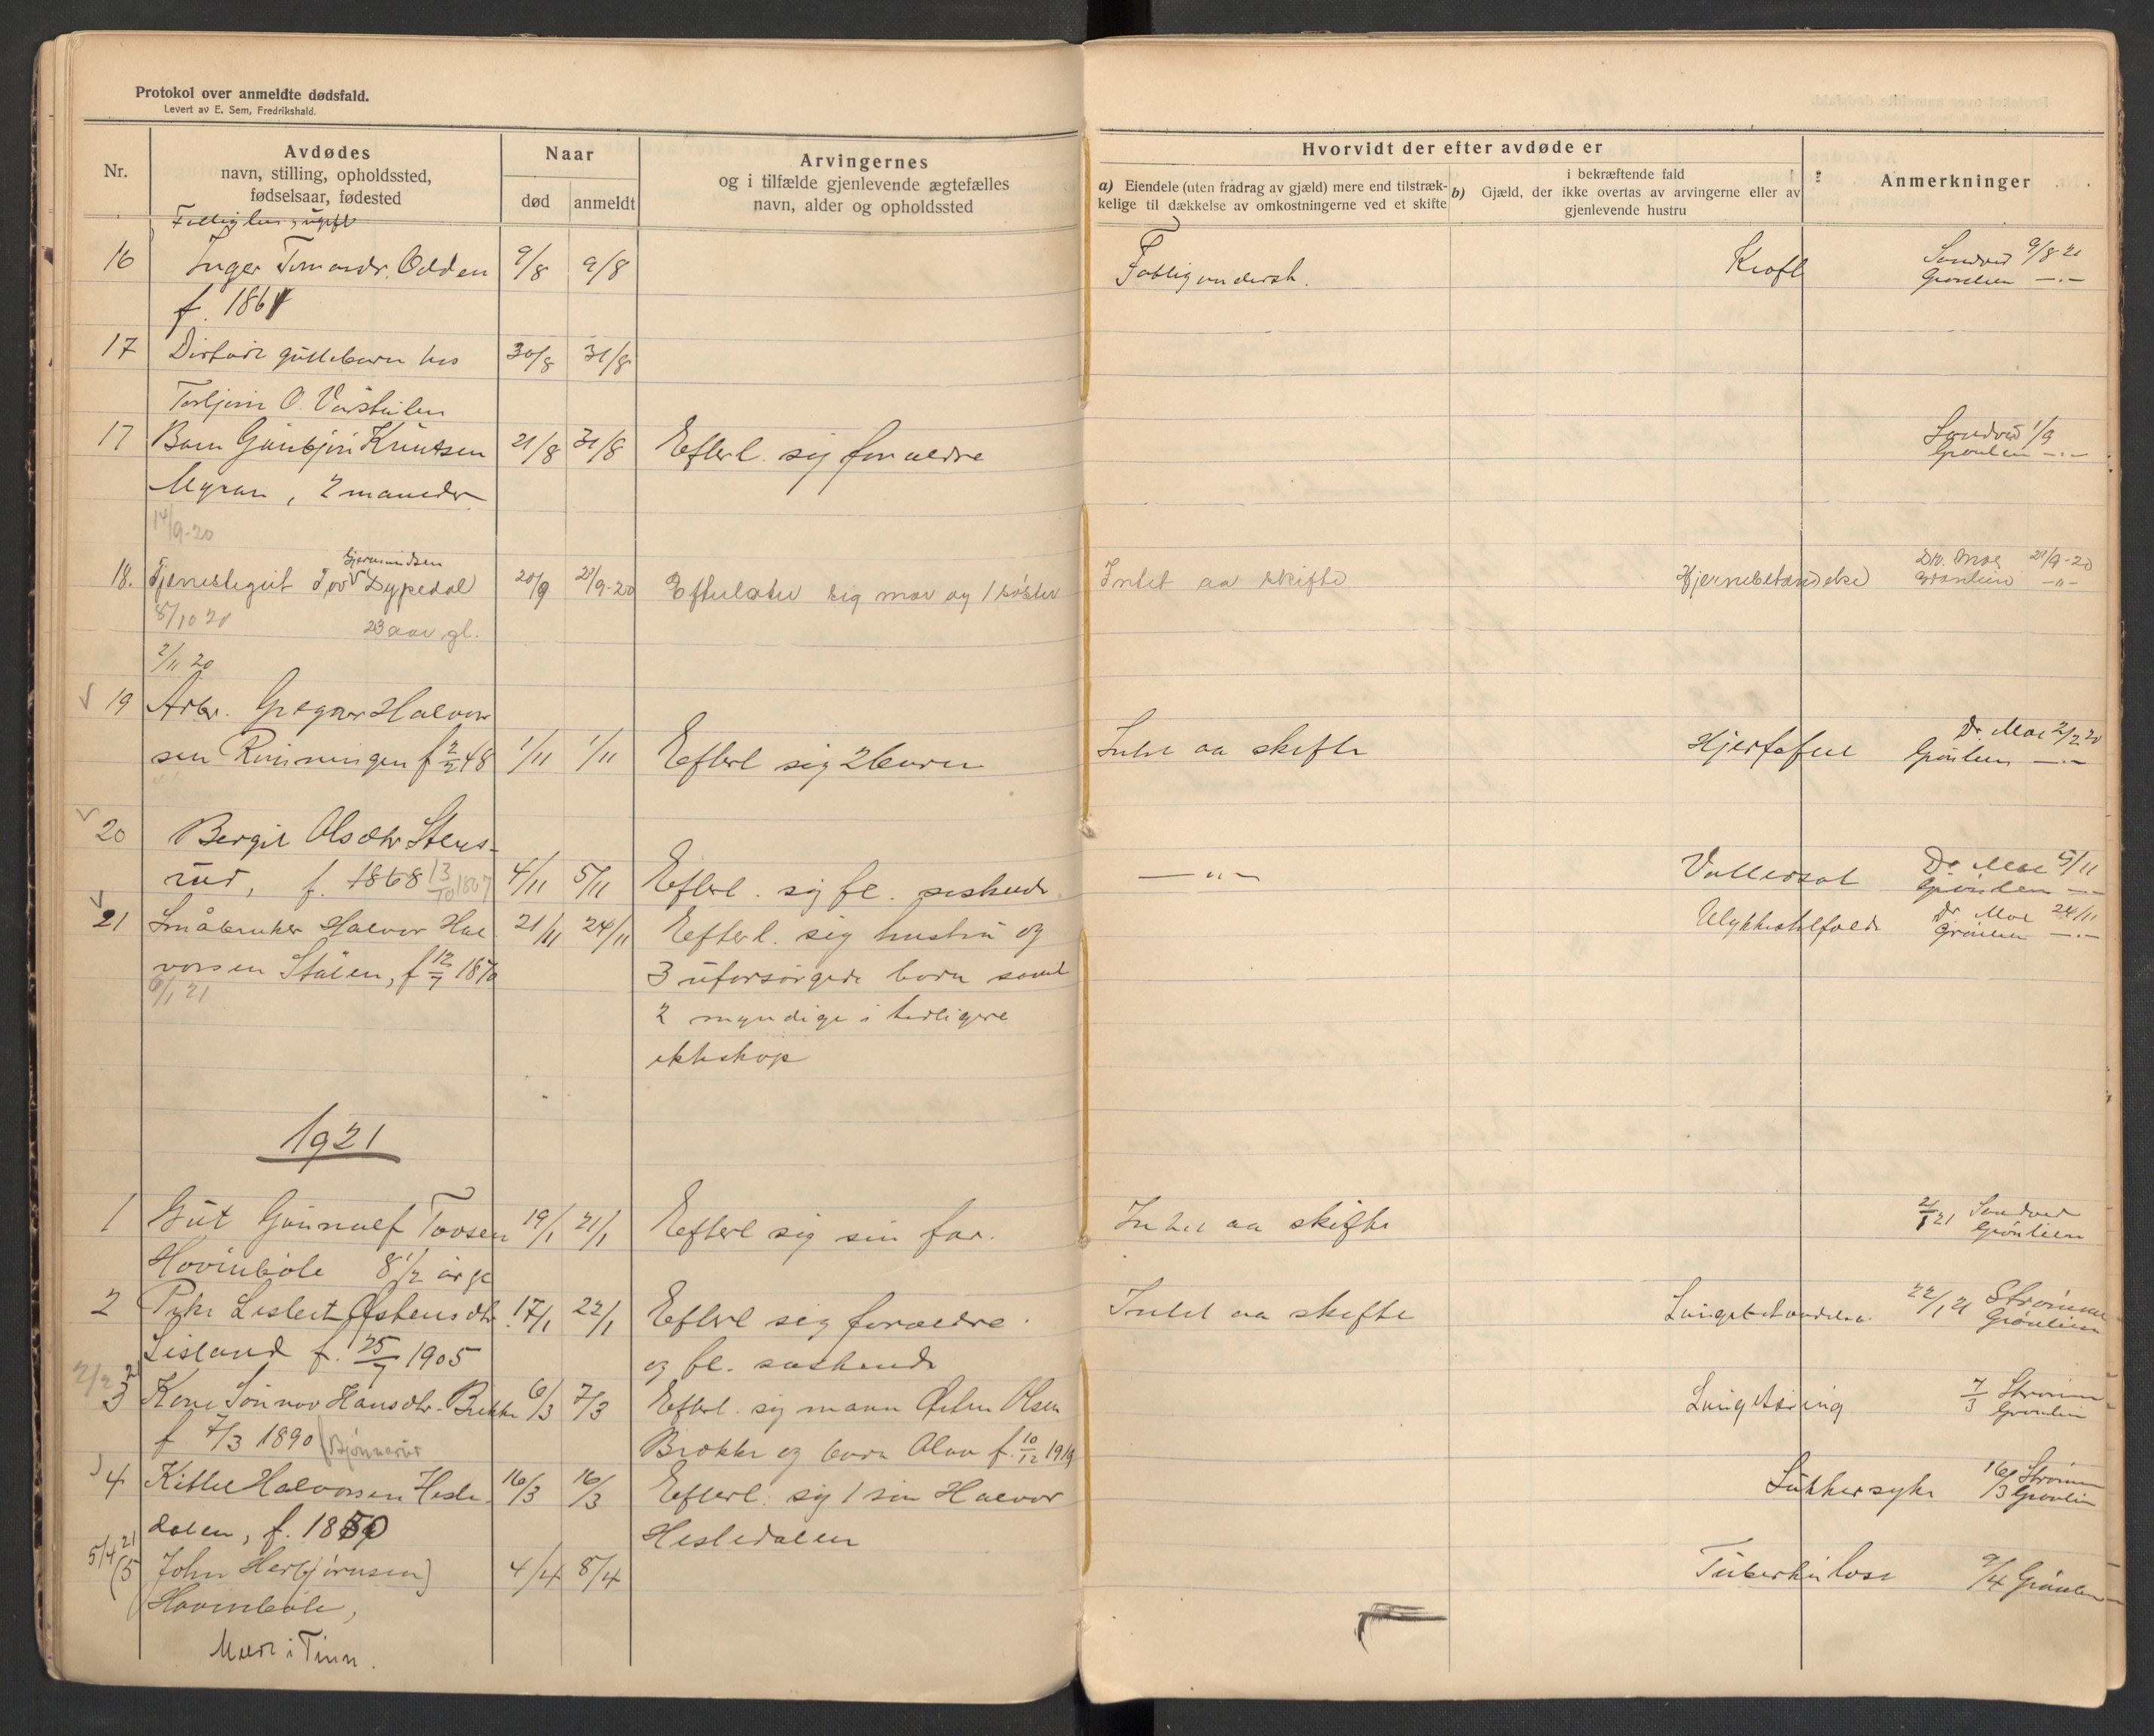 Protokol over anmeldte dødsfald.
Levert av E. Sem, Fredrikshald.
Nr.
Avdødes
navn, stilling, opholdssted,
fødselsaar, fødested
Naar
død
anmeldt
Arvingernes
og i tilfælde gjenlevende ægtefælles
navn, alder og opholdssted
Hvorvidt der efter avdøde er
a) Eiendele (uten fradrag av gjæld) mere end tilstræk-
kelige til dækkelse av omkostningerne ved et skifte
i bekræftende fald
b) Gjæld, der ikke overtas av arvingerne eller av
gjenlevende hustru
Anmerkninger
Fattiglem, ugift
16 Inger Tomasdr. Odden 9/8 9/8 Fattigunderst. Kræft Sandvid 9/8 20
f. 1861 Grønlien —.—
17 hos 30/8 31/8
O. Vårstulen
17 Barn Gunbjør Knutsen 21/8 31/8 Efterl. sig foraldre Sandvid 1/9
Myran, 2 maneder Grønlien —.—
14/9-20
Gjermundsen
18. Tjenestegut Tov Dypedal 20/9 21/9-20 Efterlater sig mor og 1 søster Intet aa skifte Hjernebetændelse Dr. Moe 21/9-20
Grønlien —"—
5/10 20 23 aar gl.
2/11 20
19 Arbr. Gregar Halvor
sen Rinningen f 2/2 48 1/11 1/11 Efterl sig 2 barn Intet aa skifte Hjertefeil Dr. Moe 2/2 20
Grønlien —.—
20 Bergit Olsdtr Stens-
rud, f. 1868 13/10 1867 4/11 5/11 Efterl. sig fl. søskende — " — Vattersot Dr Moe 5/11
Grønlien —.—
21 Småbruker Halvor Hal 21/11 24/11 Efterl. sig hustru og Ulykkestilfælde Dr. Moe 24/11
Grønlien —.—
vorsen Stålen, f 12/7 1870 3 uforsørgede barn samt
6/1 21 2 myndige i tidligere
ekteskap
1921
1 Gut Gunnulf Tovsen 19/1 21/1 Efterl sig sin far. Intet aa skifte 2/1 21 Sandvid
Grønlien
Hovinbøle 8 1/2 år gl
2 Pike Lislert Østensdtr. 17/1 22/1 Efterl sig foraldre Intet aa skifte Lungebetændelse 22/1 21 Strømme
Grønlien
Lisland f. 25/7 1905 og fl. søskende
2/2 21
3 Kone Sønnov Hansdtr. Brekke 6/3 7/3 Efterl. sig mann Østen Olsen Lungetæring 7/3 Strømm
Grønlien
f 7/3 1890 (Bjønnerud Brække og barn Olav f. 10/12 1919
4 Kittel Halvorsen Hesle- 16/3 16/3 Efterl. sig 1 sin Halvor Sukkersyke 16/3 Strømm
Grønlien
dalen, f. 1850 Hesledalen
5/4 21
(5 John Herbjørnsen) 4/4 8/4 Tuberkulose 9/4 Grønlien
Hovinbøle,
Mæel i Tinn.